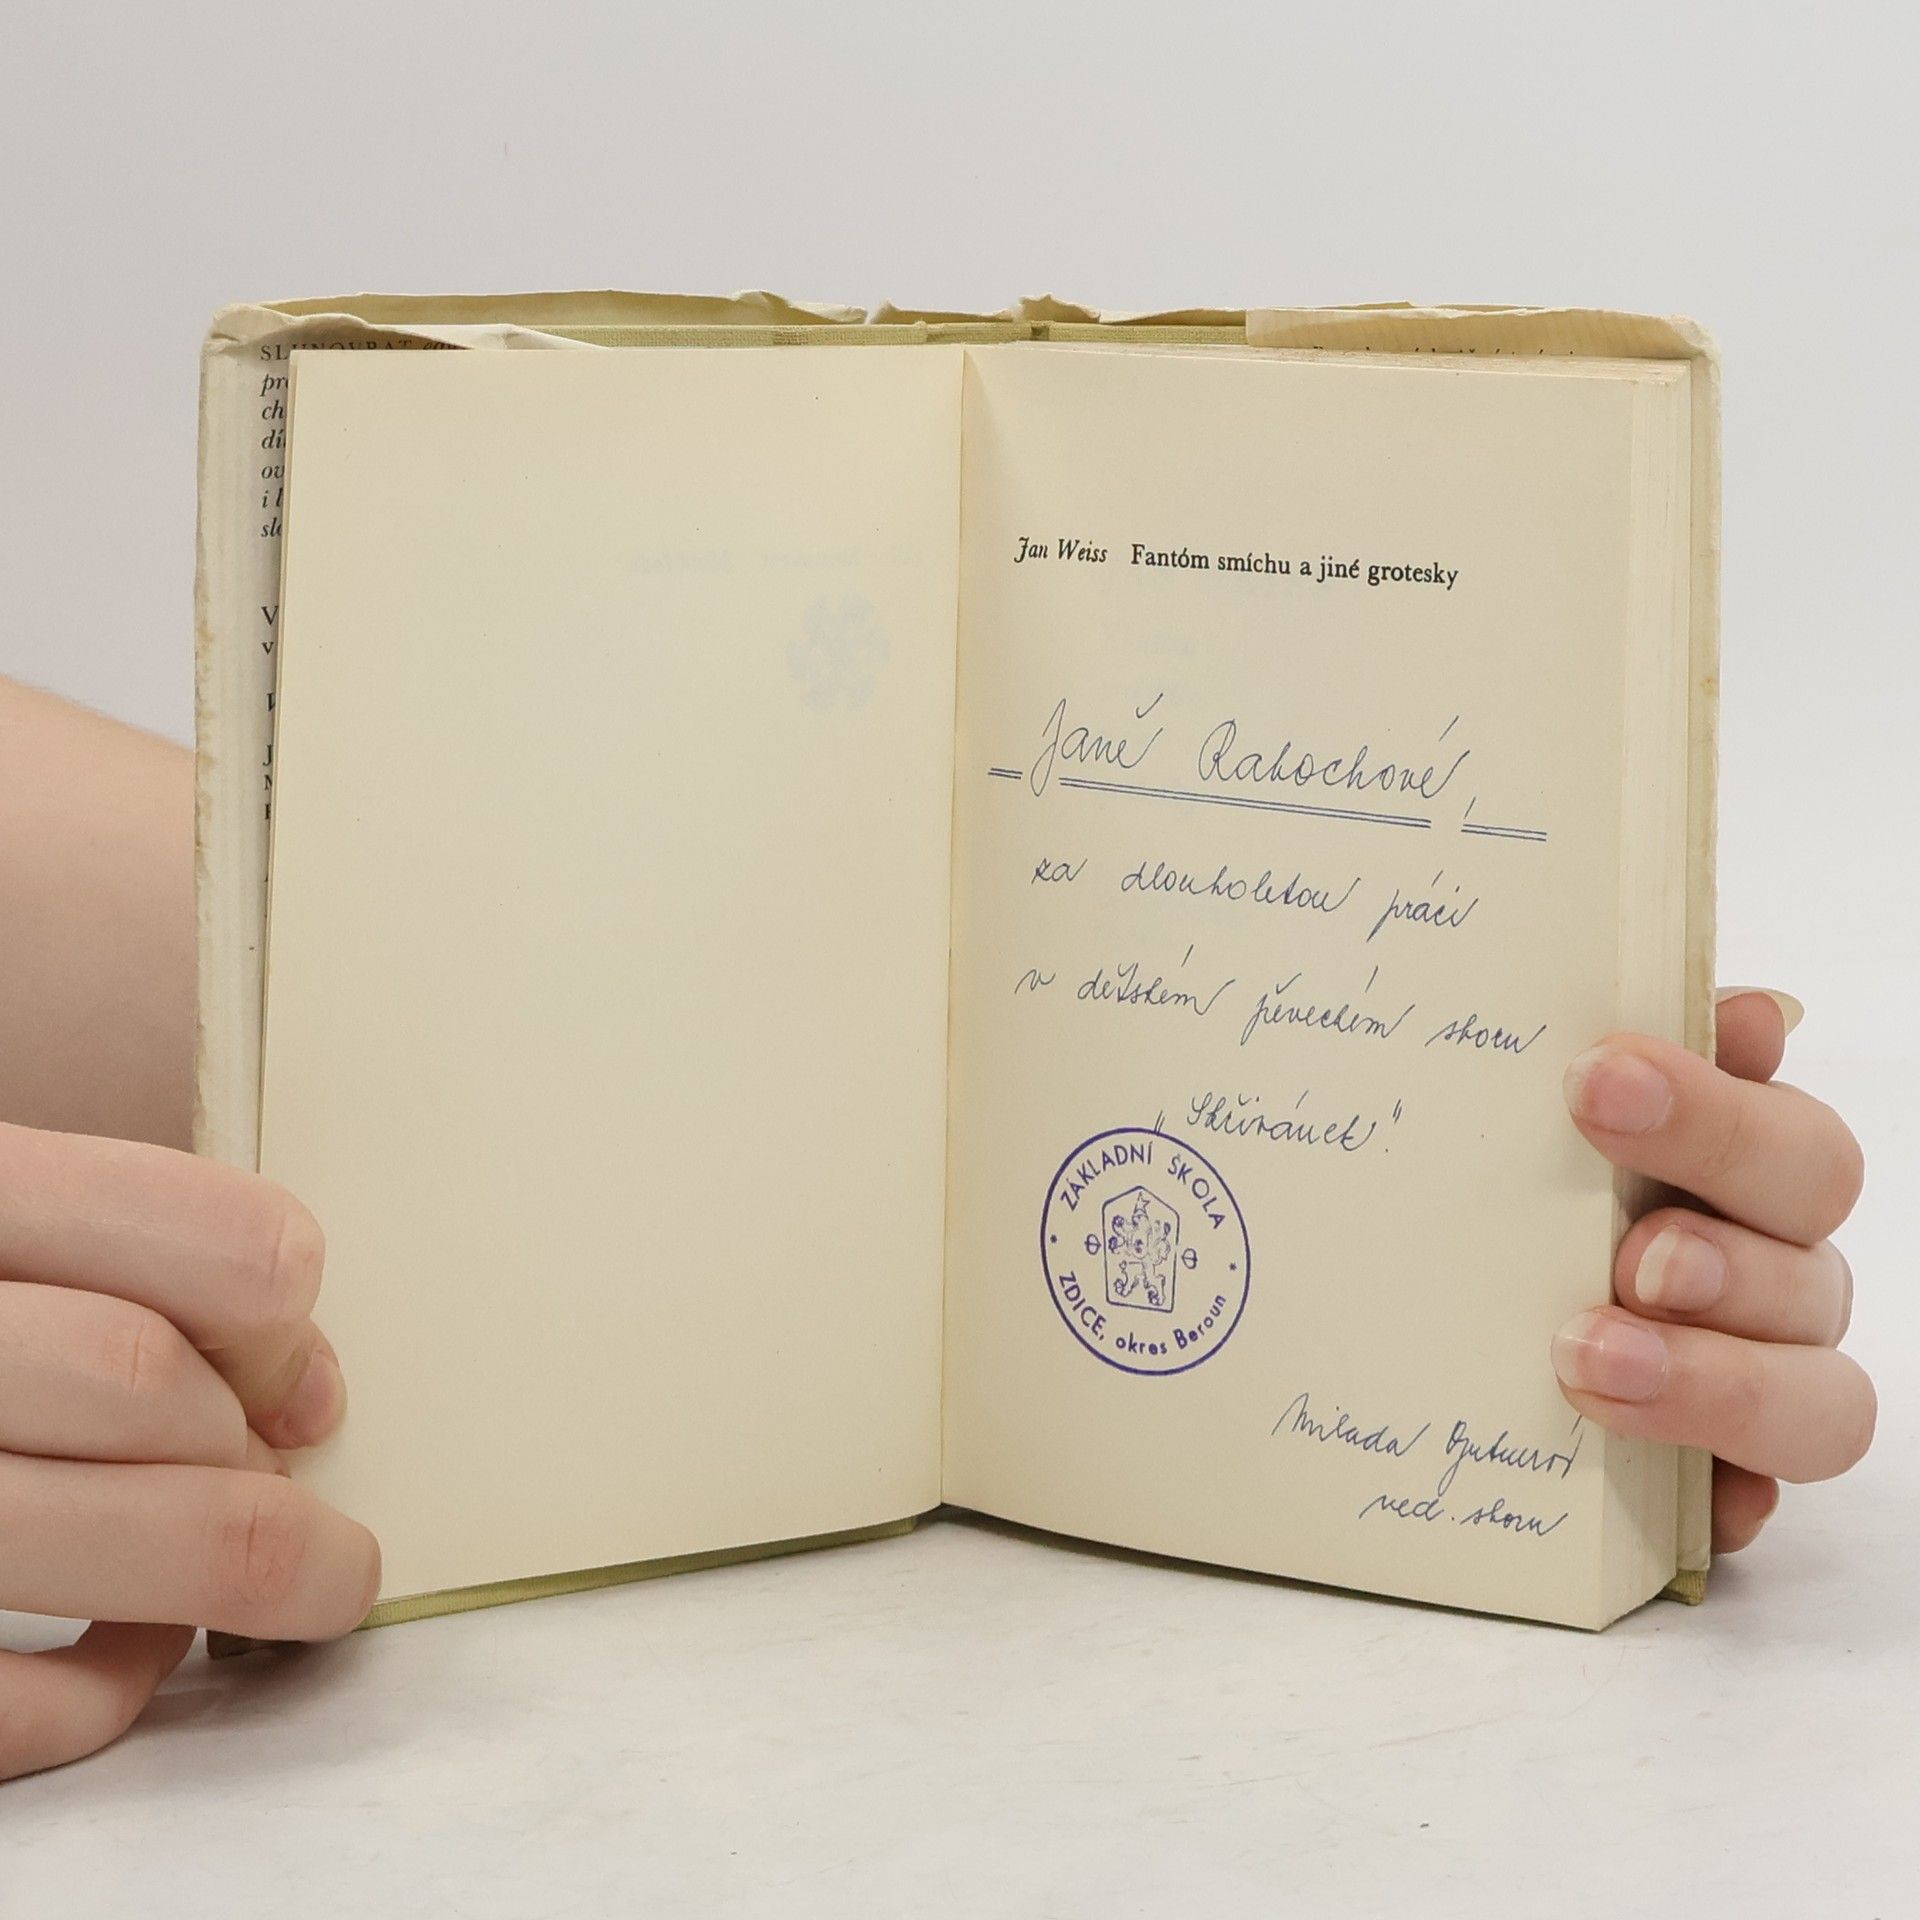 SLUNOVRAT
pr
ch
dí
ov
i l
slo
V
v
Jan Weiss Fantóm smíchu a jiné grotesky
Janě Rabochové,
za dlouholetou práci
v dětském pěveckém sboru
„Skřivánek".
ZÁKLADNÍ ŠKOLA
ZDICE, okres Beroun
Milada
ved. sboru